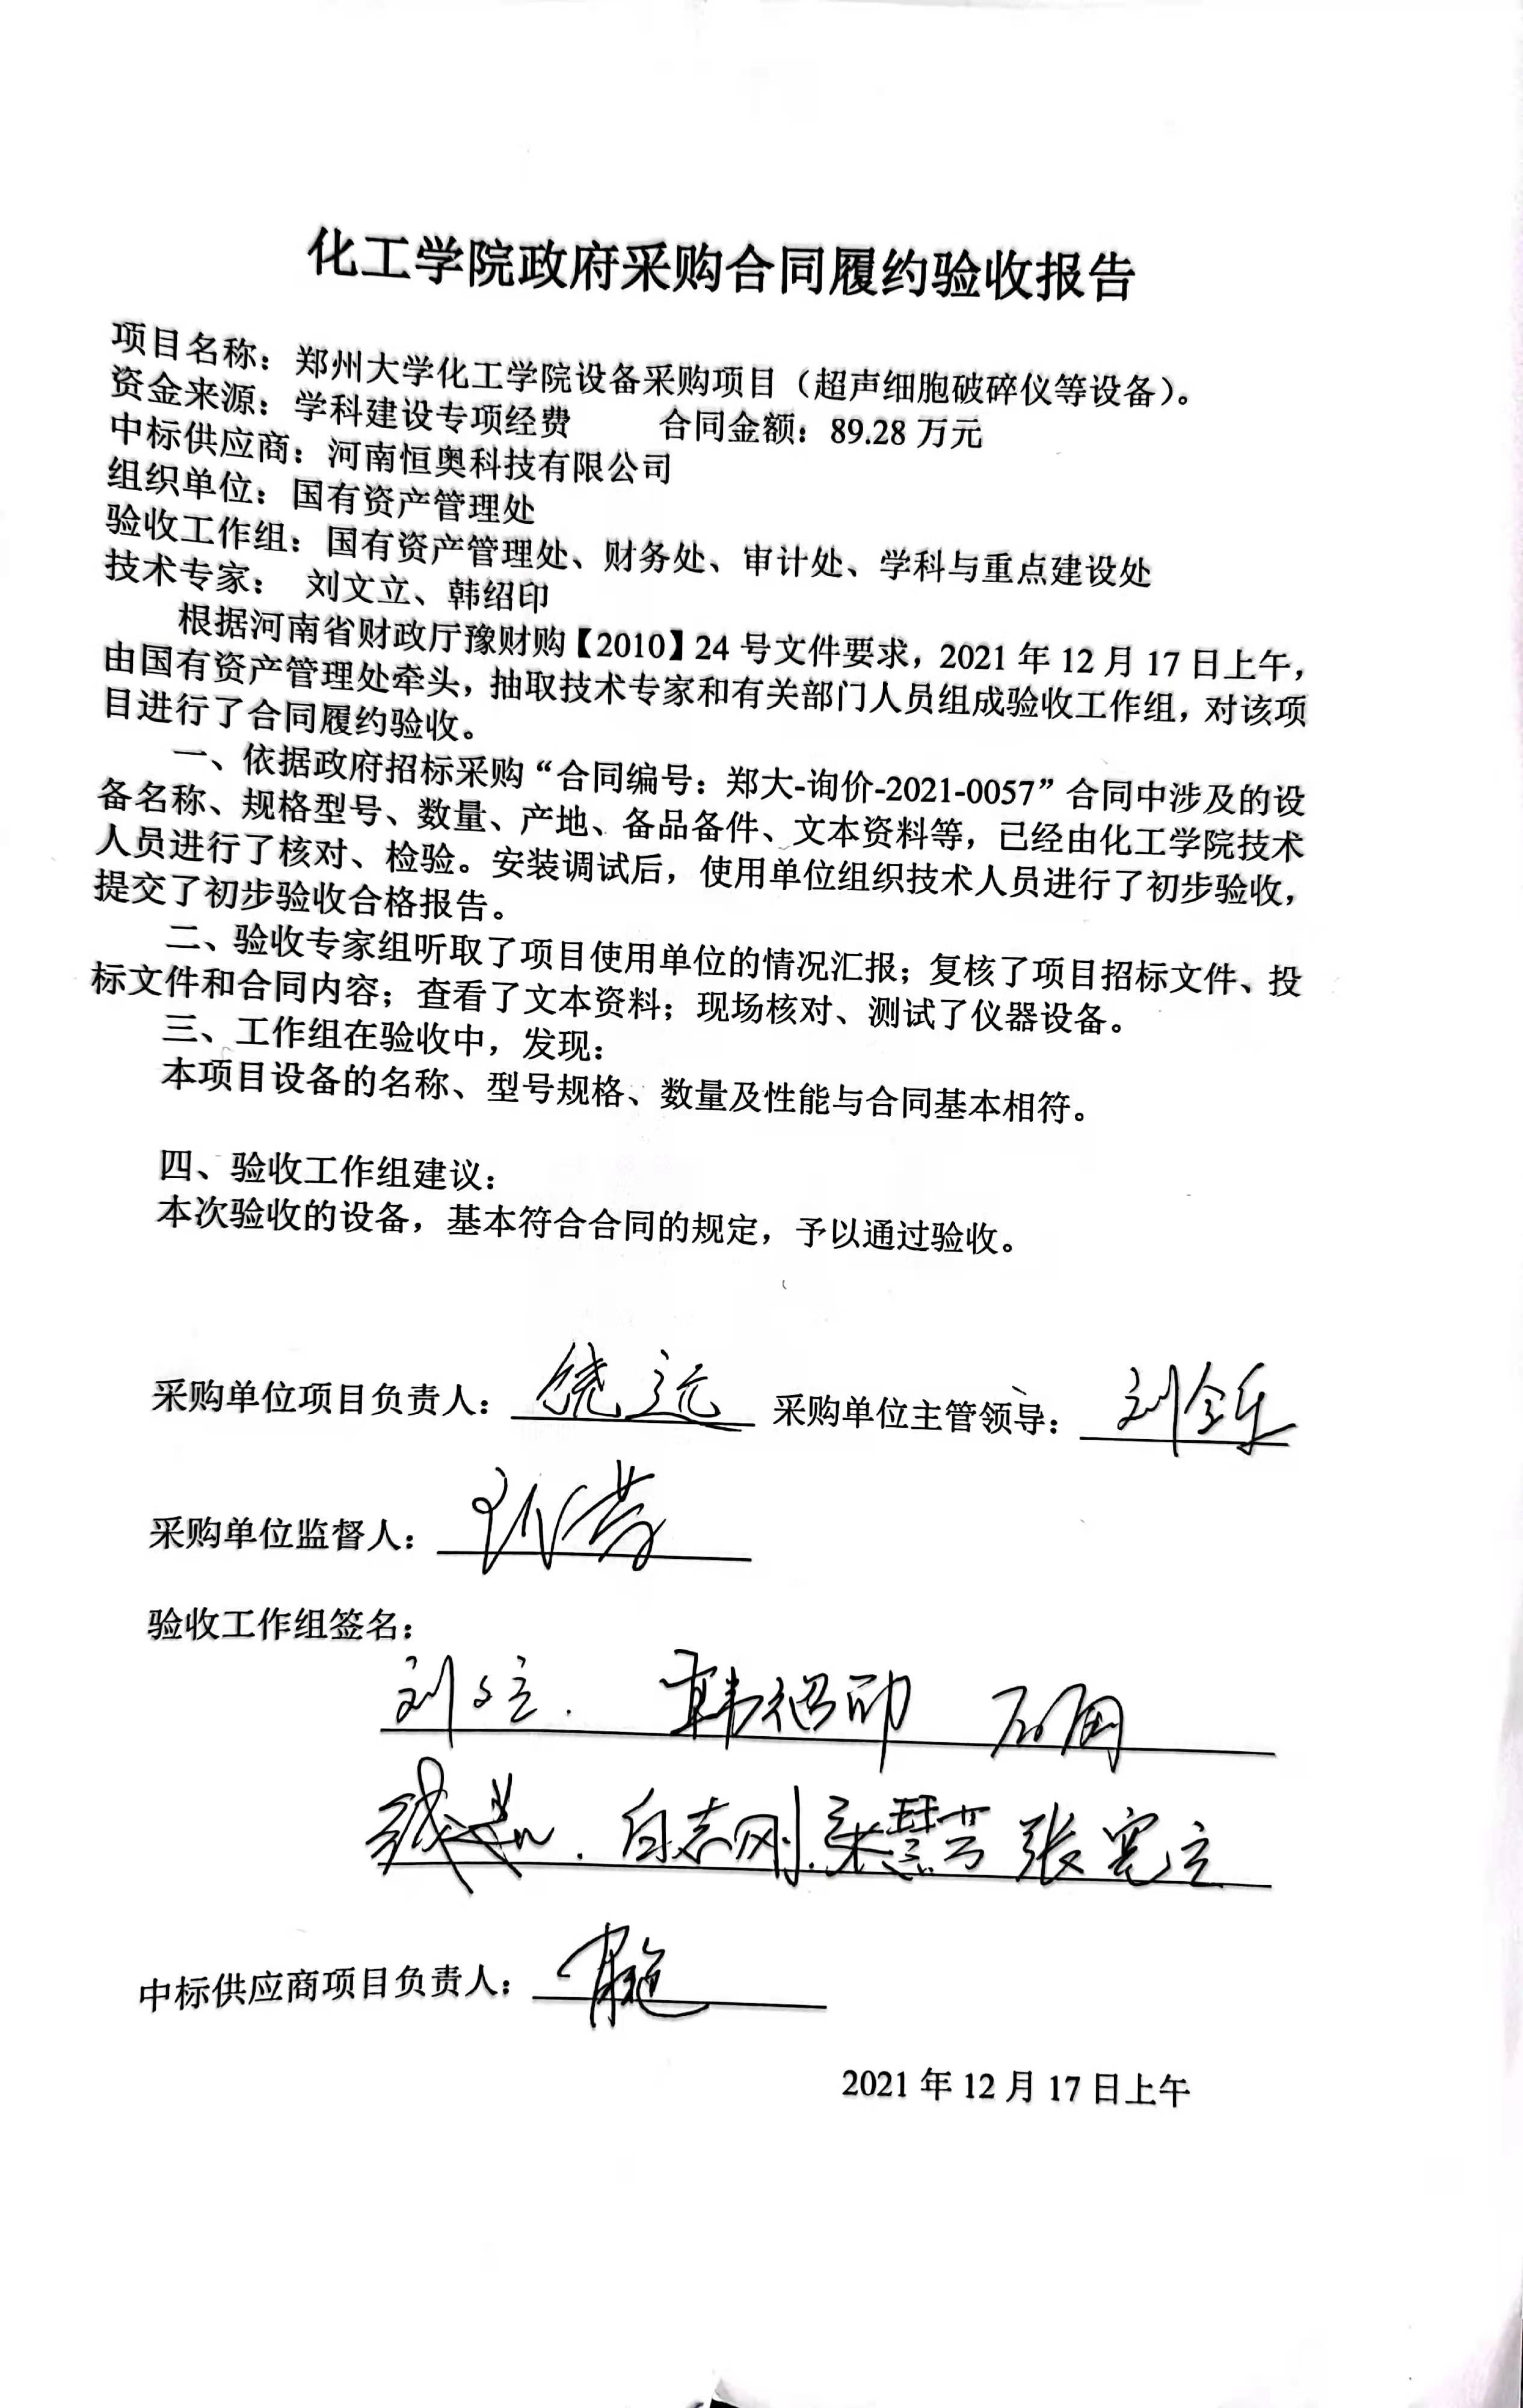 化工学院政府采购合同履约验收报告
项目名称：郑州大学化工学院设备采购项目（超声细胞破碎仪等设备）。
资金来源：学科建设专项经费 合同金额：89.28 万元
中标供应商：河南恒奥科技有限公司
组织单位：国有资产管理处
验收工作组：国有资产管理处、财务处、审计处、学科与重点建设处
技术专家： 刘文立、韩绍印
根据河南省财政厅豫财购【2010】24 号文件要求，2021 年 12 月 17 日上午，
由国有资产管理处牵头，抽取技术专家和有关部门人员组成验收工作组，对该项
目进行了合同履约验收。
一、依据政府招标采购“合同编号：郑大-询价-2021-0057”合同中涉及的设
备名称、规格型号、数量、产地、备品备件、文本资料等，已经由化工学院技术
人员进行了核对、检验。安装调试后，使用单位组织技术人员进行了初步验收，
提交了初步验收合格报告。
二、验收专家组听取了项目使用单位的情况汇报；复核了项目招标文件、投
标文件和合同内容；查看了文本资料；现场核对、测试了仪器设备。
三、工作组在验收中，发现：
本项目设备的名称、型号规格、数量及性能与合同基本相符。
四、验收工作组建议：
本次验收的设备，基本符合合同的规定，予以通过验收。
采购单位项目负责人： 采购单位主管领导：
采购单位监督人：
验收工作组签名：
刘文立 韩绍印
白志刚 张宪立
中标供应商项目负责人：
2021 年 12 月 17 日上午